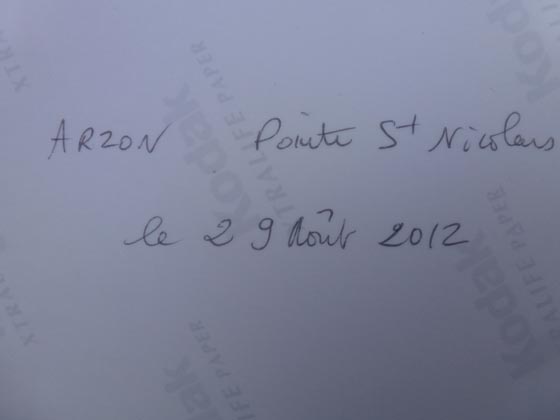 XTRALIFE PAPER
Kodak
Kodak
ARZON Pointe St Nicolas
Kodak
XTRALIFE PAPER
le 29 Août 2012
Kodak
XTRALIFE PAPER
Kodak
LIFE PAPER